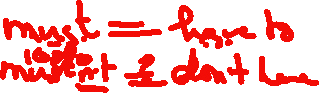 must = have to
mustn't ≠ don't have